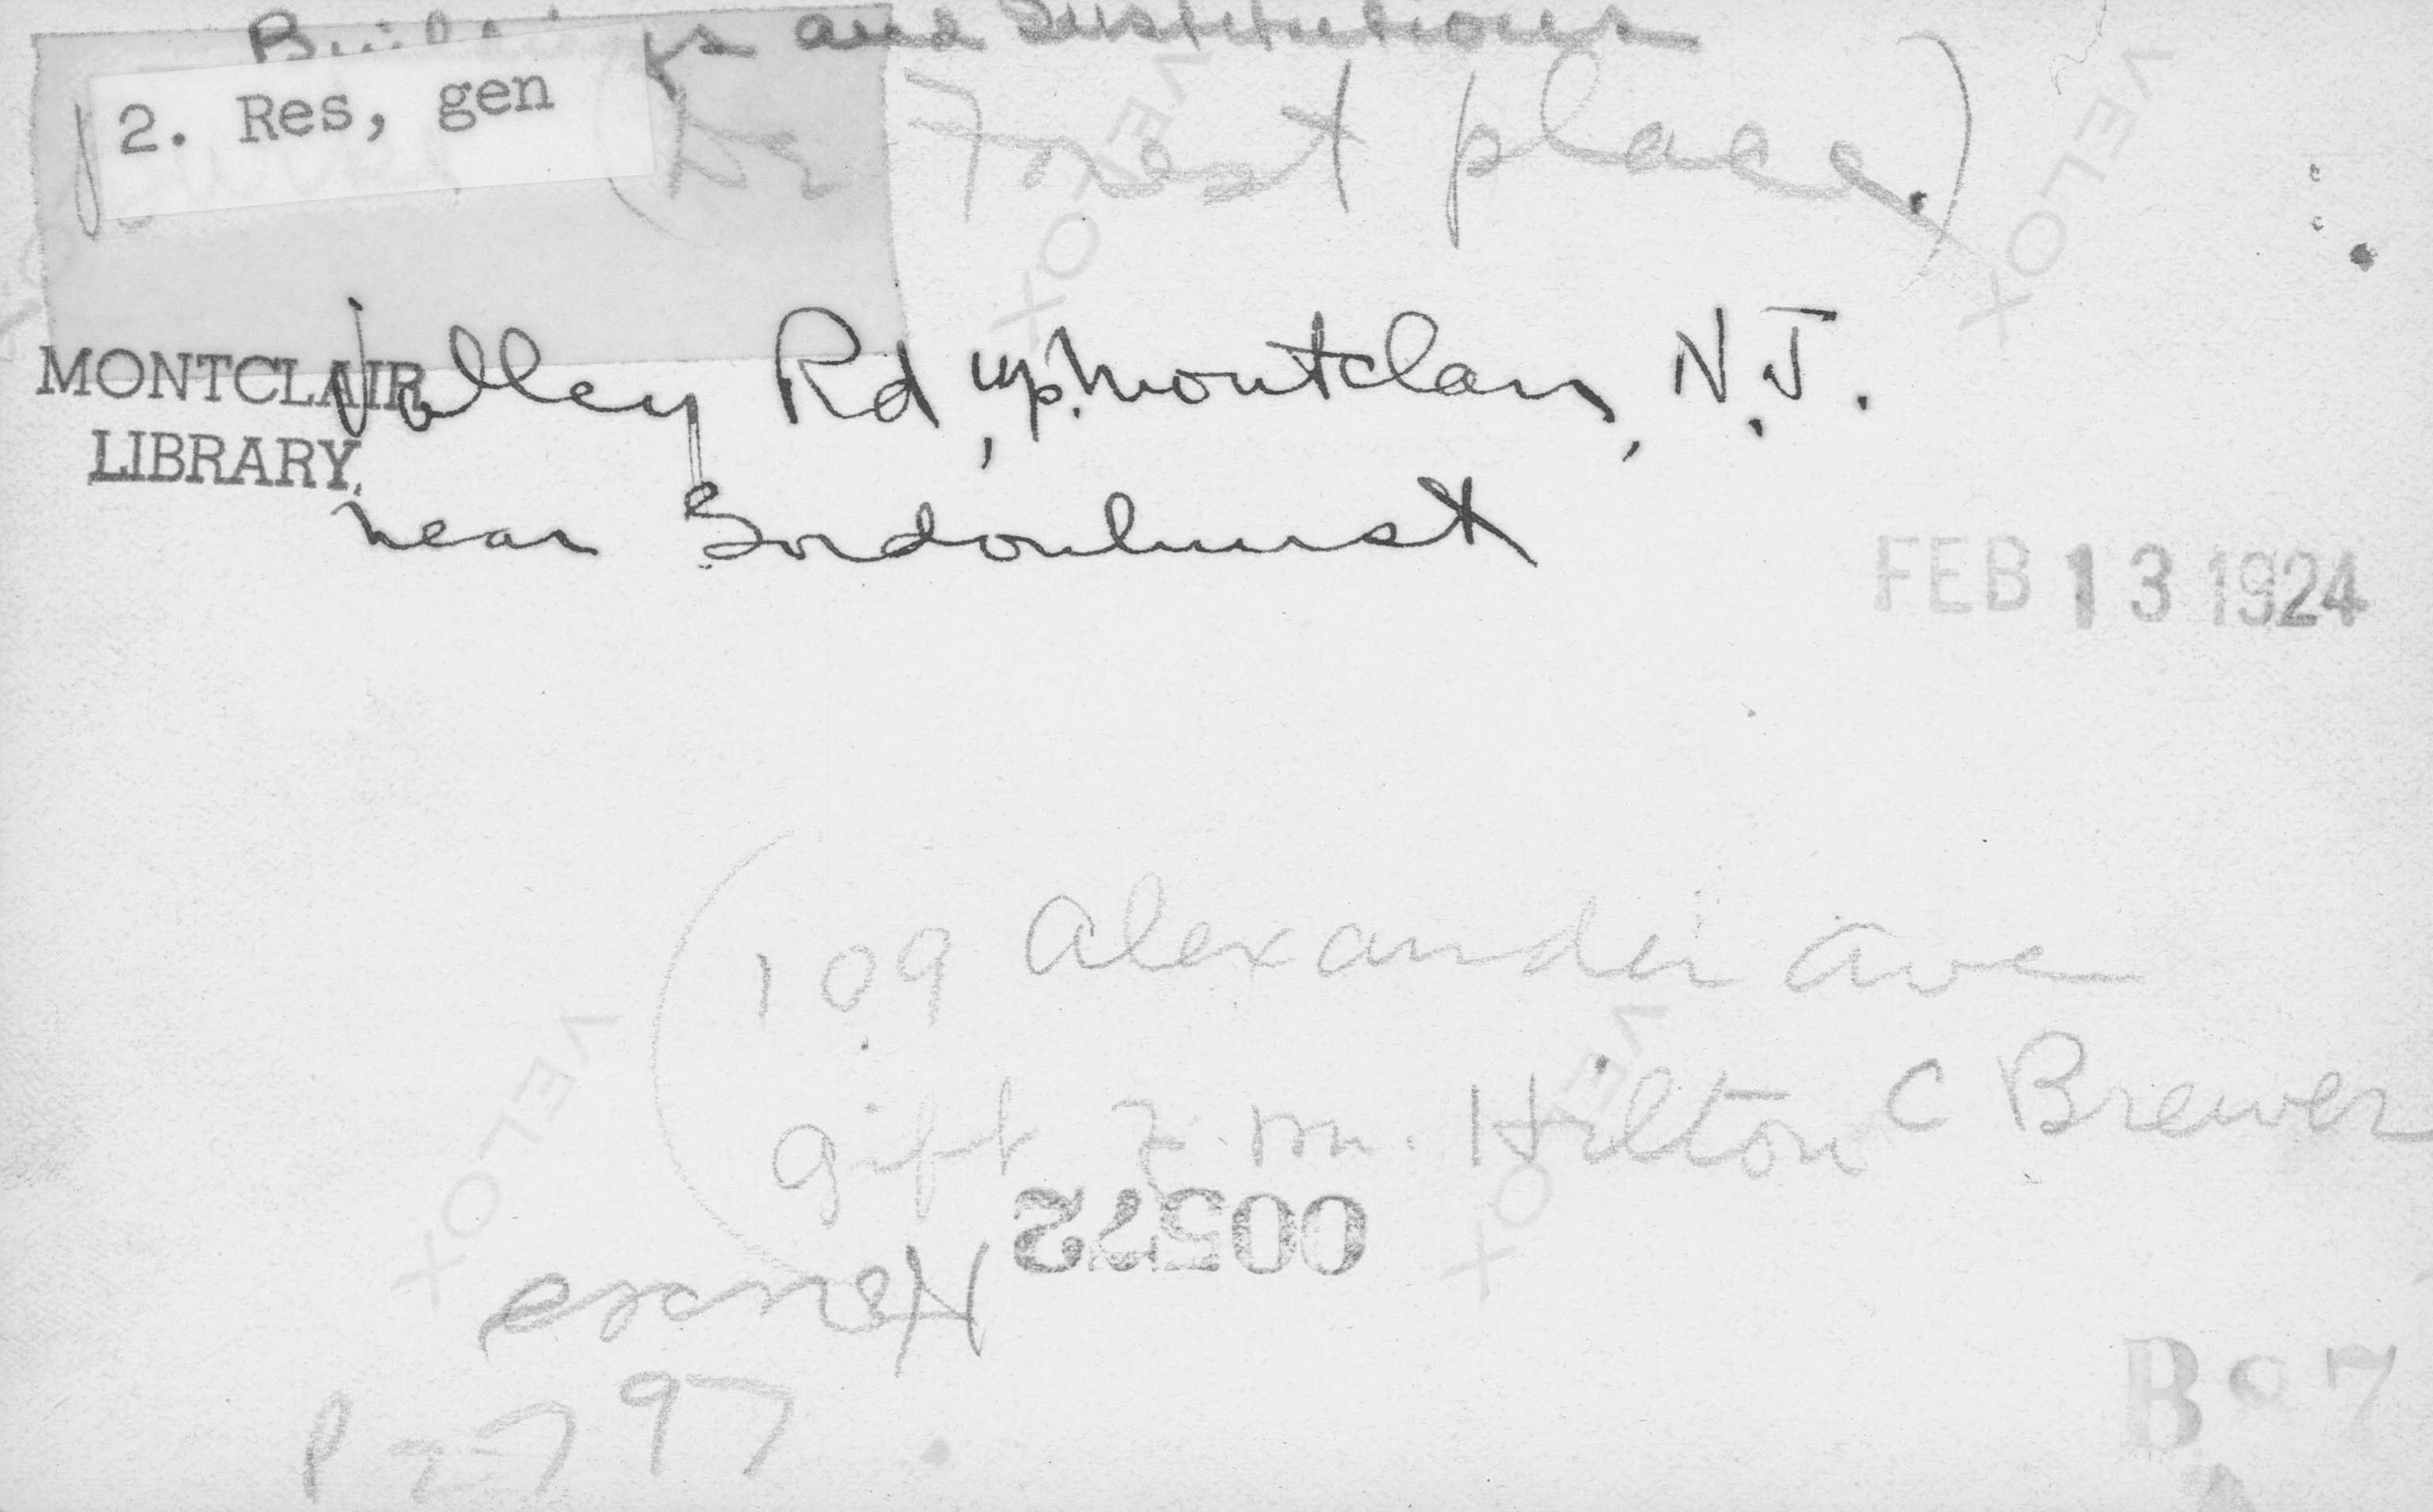 Buildings and Institutions
2. Res, gen
(De Forest place.)
VELOX
VELOX
MONTCLAIR
LIBRARY
Valley Rd, up. Montclair, N.J.
near Gordonhurst
FEB 13 1924
(109 Alexander Ave
gift F. M. Hilton C Brewer
VELOX
VELOX
00572
House
P 2797